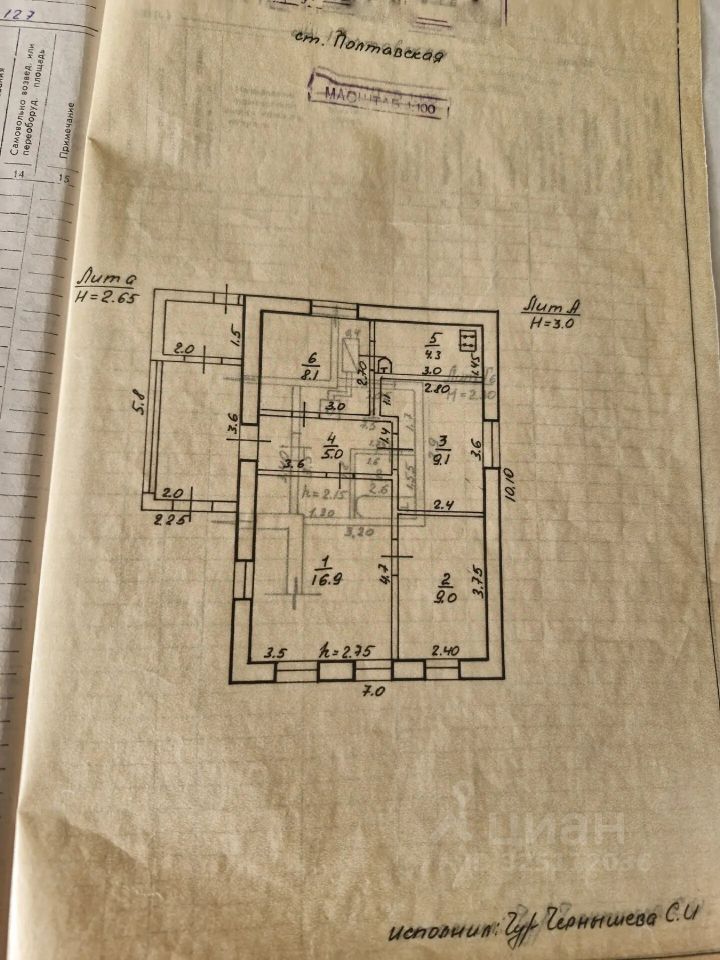 127
Самовольно возвед. или
переоборуд. площадь
Примечание
14
15
ст. Полтавская
МАСШТАБ 1:100
Лит а
Н=2.65
Лит А
Н=3.0
1.5
2.0
5.8
3.6
2.0
2.25
6
8.1
2.70
3.0
5
4.3
3.0
1.45
2.80
1.1
4
5.0
3.6
1.4
3
9.1
3.6
2.4
10.10
h=2.15
2.6
1.55
1.7
1.20
3.20
1
16.9
4.7
2
9.0
3.75
3.5
h=2.75
2.40
7.0
циан
исполнил: Чур Чернышева С.И